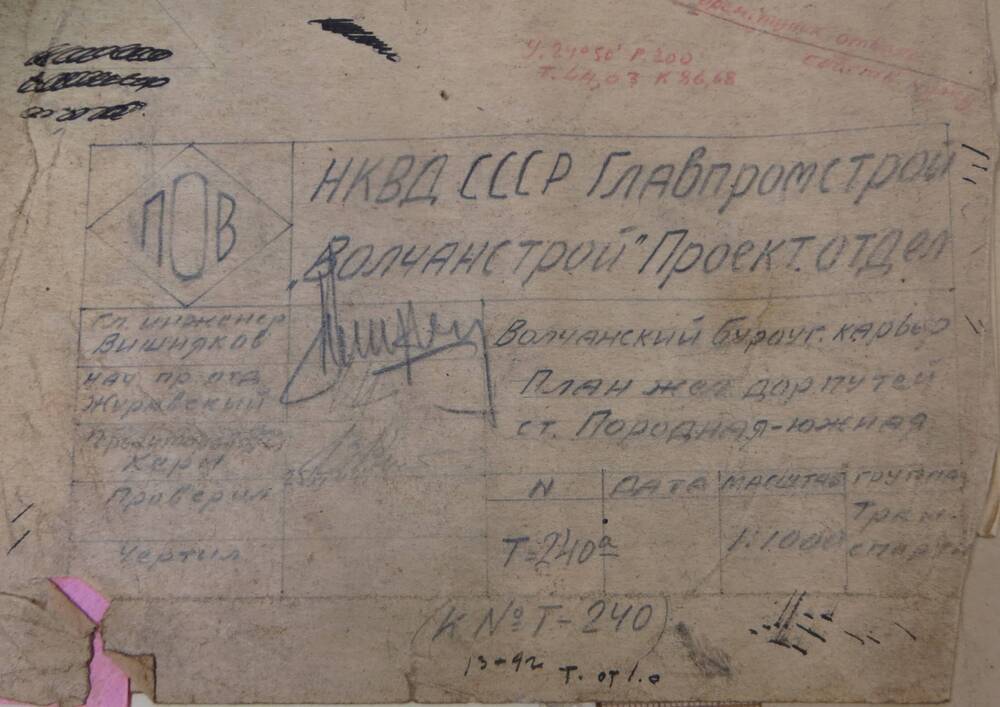 У. 24°50' Р. 200
Т. 64,03 К 86,68
ПОВ
НКВД СССР Главпромстрой
„Волчанстрой" Проект. отдел
гл. инженер
Вишняков
нач. пр. отд.
Журавский
Керн
Проверил
Чертил
Волчанский буроуг. карьер
План жел. дор. путей
ст. Породная-южная
N ДАТА МАСШТАБ ГРУППА
Т-240а 1:1000 Тр
(К № Т-240)
Т. от 1.0